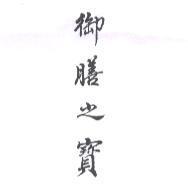 御膳之寶